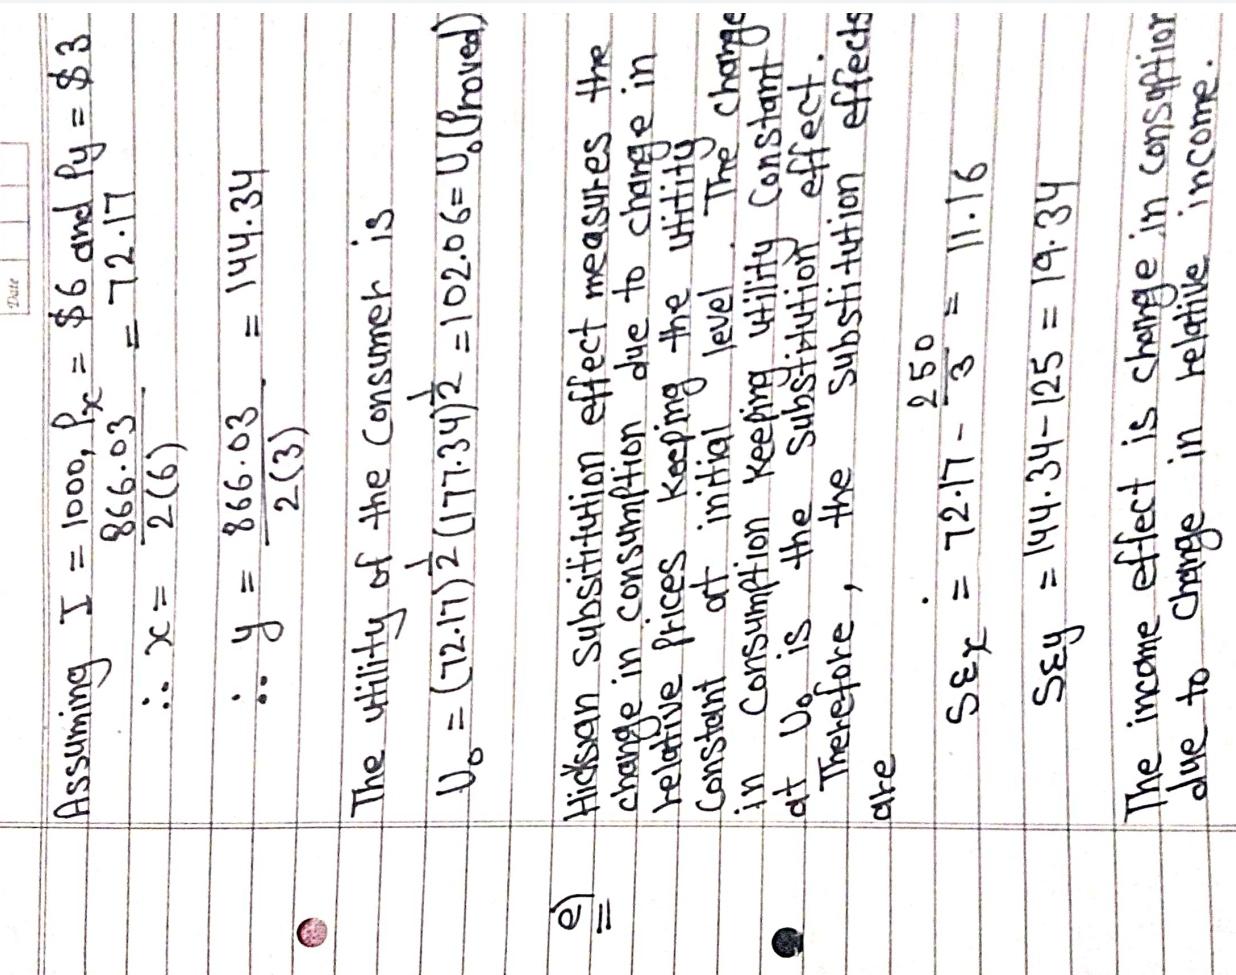 Date
Assuming I = 1000, Px = $6 and Py = $3
∴ x = 866.03 / 2(6) = 72.17
∴ y = 866.03 / 2(3) = 144.34
The utility of the consumer is
U₀ = (72.17)^1/2 (177.34)^1/2 = 102.06 = U₀ (Proved)
e)
Hicksian subsititution effect measures the
change in consumption due to change in
relative prices keeping the utitity
constant at initial level. The change
in consumption keeping utility constant
at U₀ is the substitution effect.
Therefore, the substitution effects
are
SEx = 72.17 - 250/3 = 11.16
SEy = 144.34 - 125 = 19.34
The income effect is change in consaption
due to change in relative income.